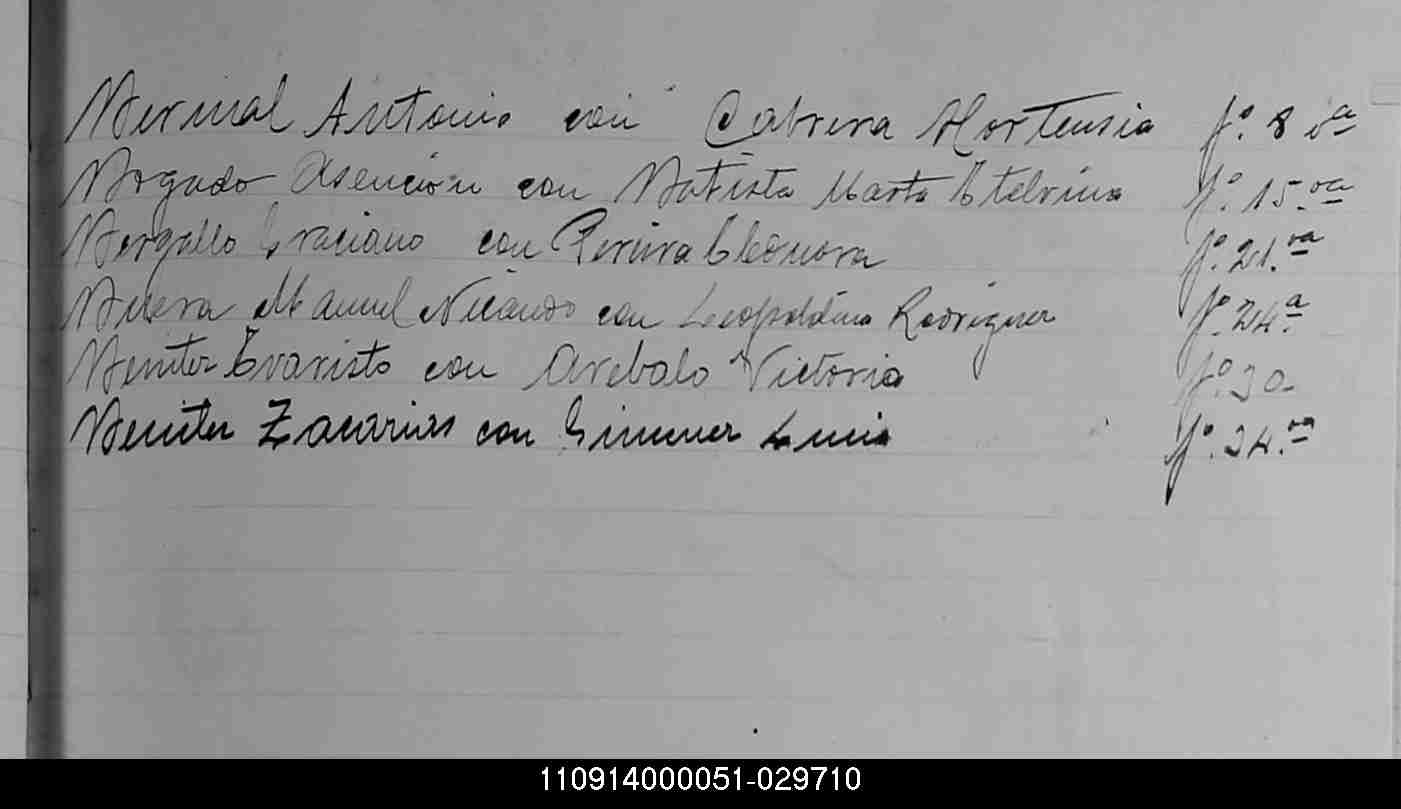 Bernal Antonio con Cabrera Hortensia fº. 8 va
Bogado Asencion con Batista Marta Etelvina fº. 15. va
Bergallo Graciano con Pereira Eleonora fº. 21. va
Buera Manuel Nicando con Leopoldina Rodriguez fº. 24 a
Benitez Evaristo con Arebalo Victoria fº. 30
Benitez Zacarias con Gimenez Lucia fº. 34. va
110914000051-029710